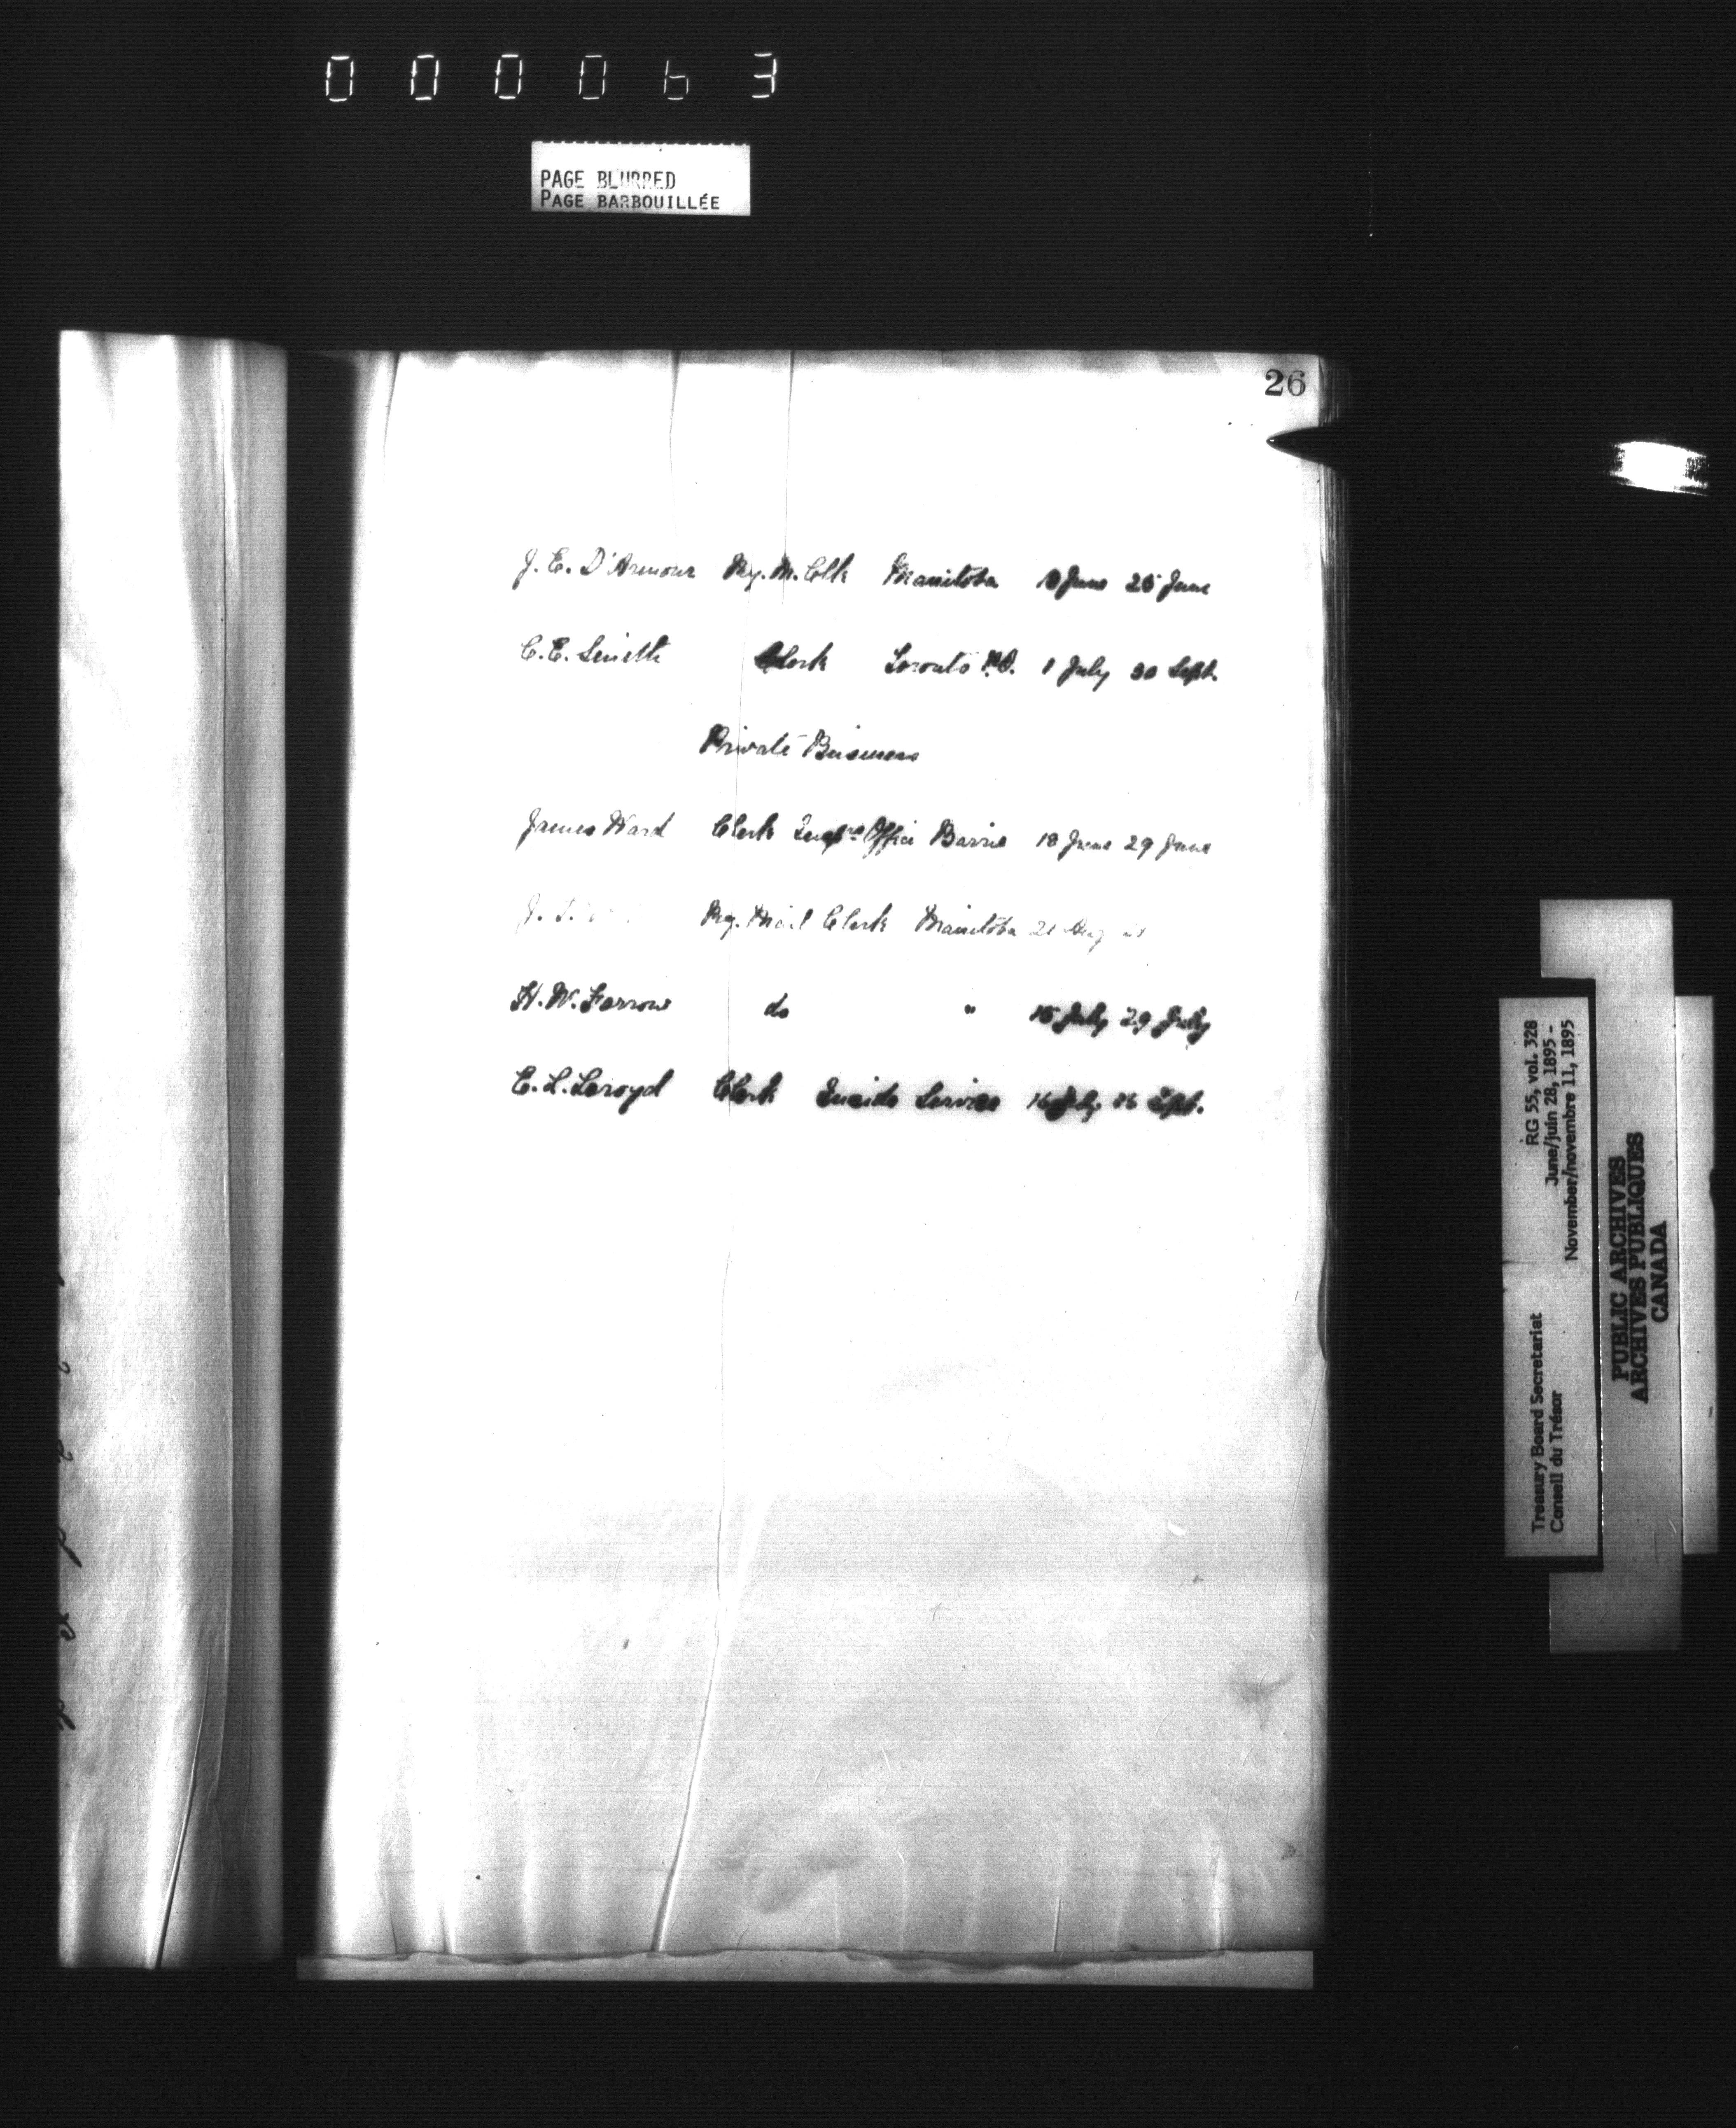 000063
PAGE BLURRED
PAGE BARBOUILLÉE
26
J. E. D'Armour Ry. M. Clk Manitoba June 25 June
C. E. Clerk Toronto P.O. 1 July 30 Sept.
Private Business
James Ward Clerk Insprs Office Barrie 18 June 29 June
J. Ry. Mail Clerk Manitoba 21 Aug
H. W. Farrow do " 15 July 29 July
E. L. Clerk Inside Service 16 July 16 Sept.
Treasury Board Secretariat RG 55, vol. 328
Conseil du Trésor June/juin 28, 1895 -
November/novembre 11, 1895
PUBLIC ARCHIVES
ARCHIVES PUBLIQUES
CANADA